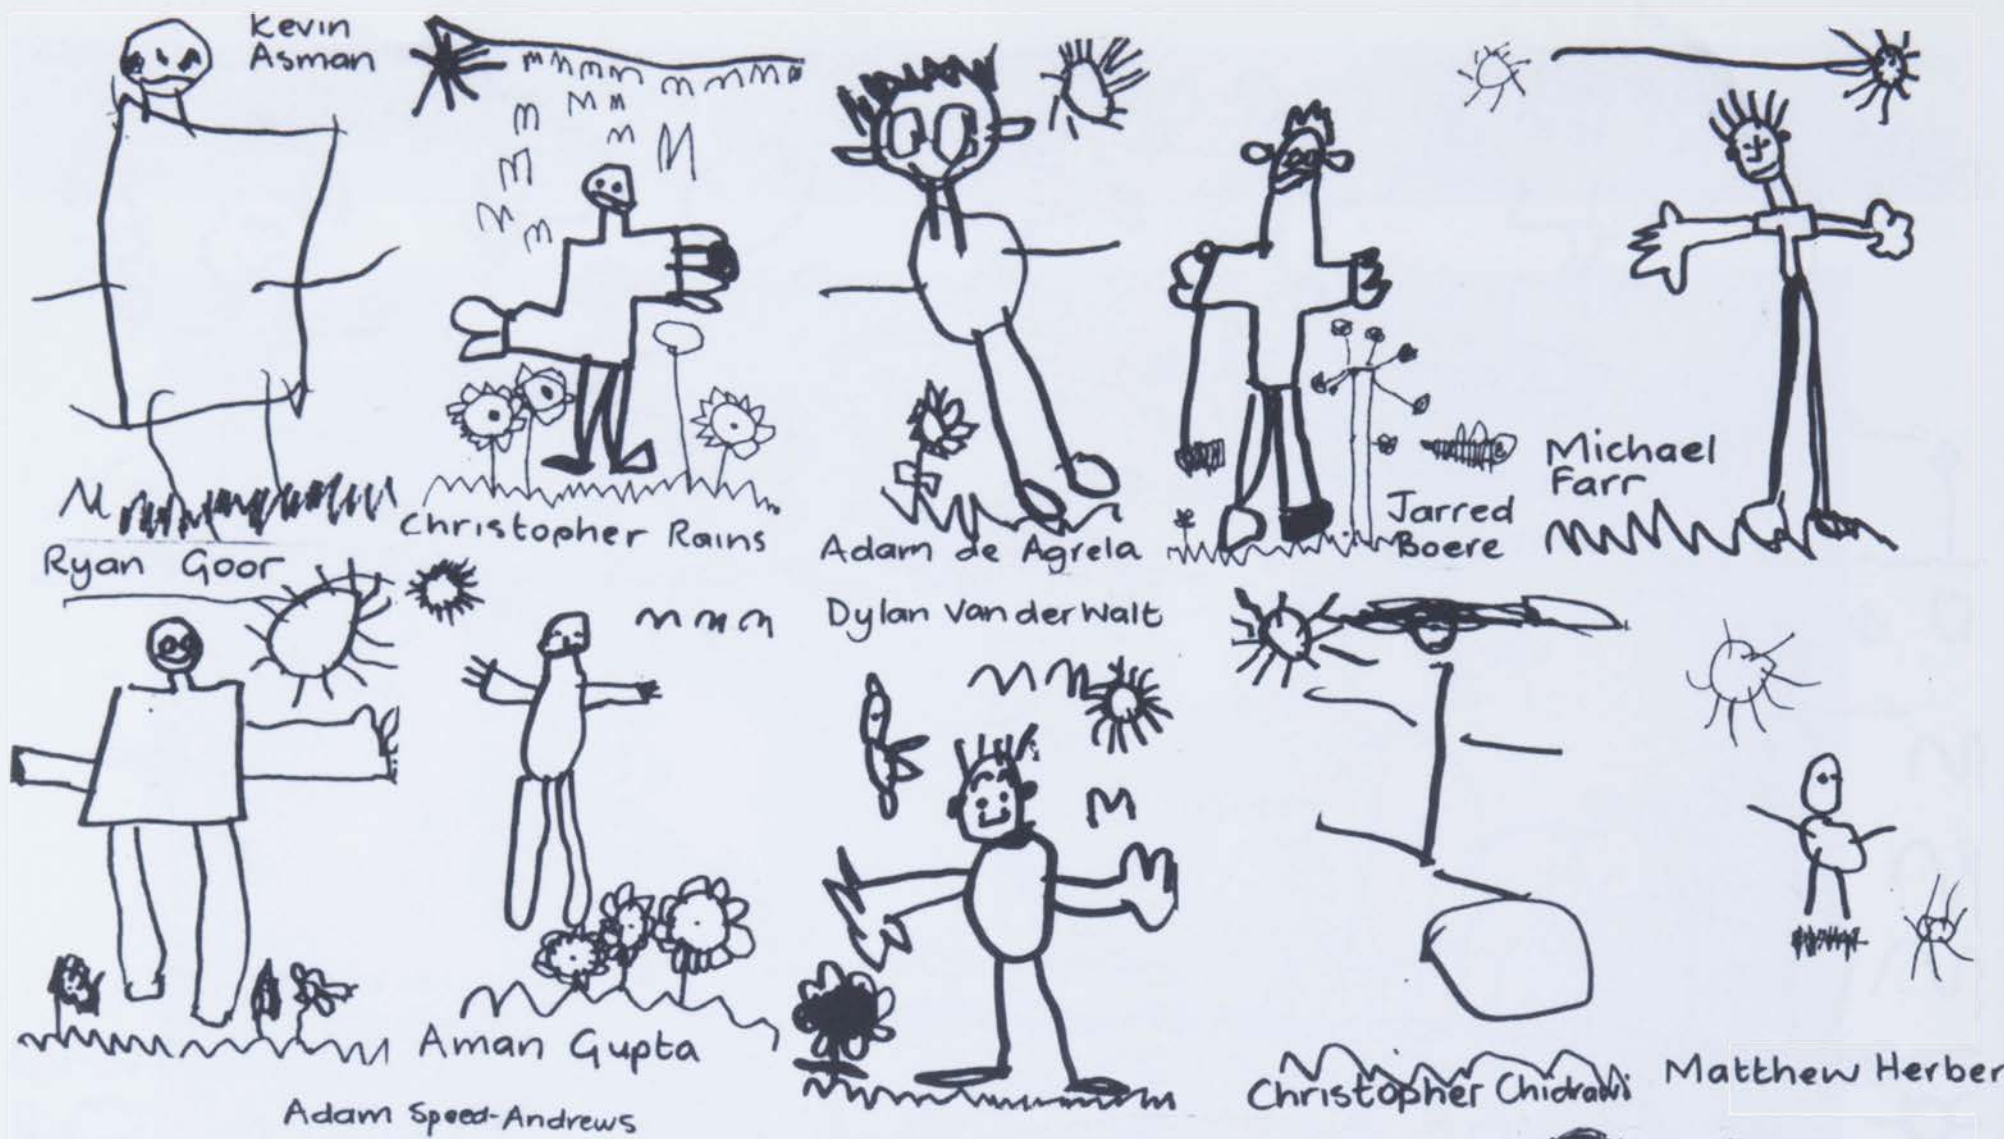 Kevin
Asman
Christopher Rains
Adam de Agrela
Jarred
Boere
Michael
Farr
Ryan Goor
Dylan Van der Walt
Aman Gupta
Adam Speed-Andrews
Christopher Chidrawi
Matthew Herber